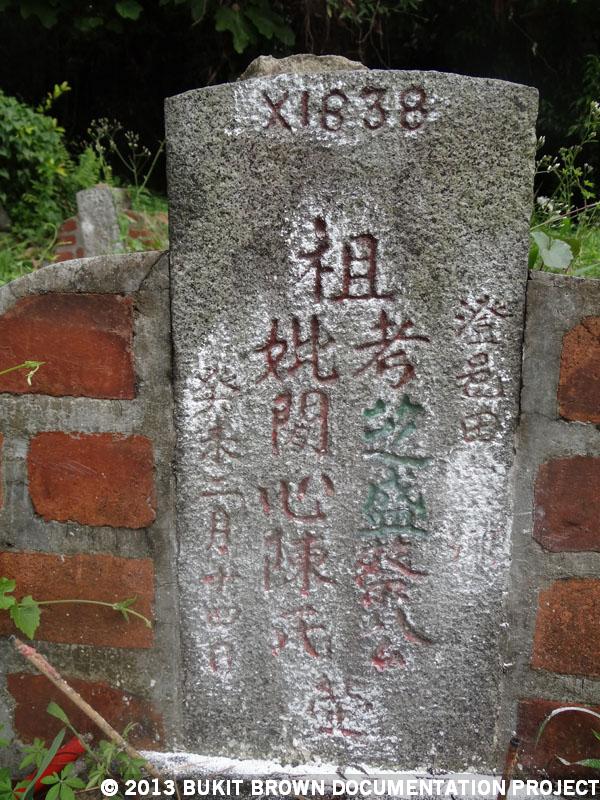 X1638
祖
澄邑田
考芝盛蔡公
妣閏心陳氏
塋
癸未三月十四日
© 2013 BUKIT BROWN DOCUMENTATION PROJECT